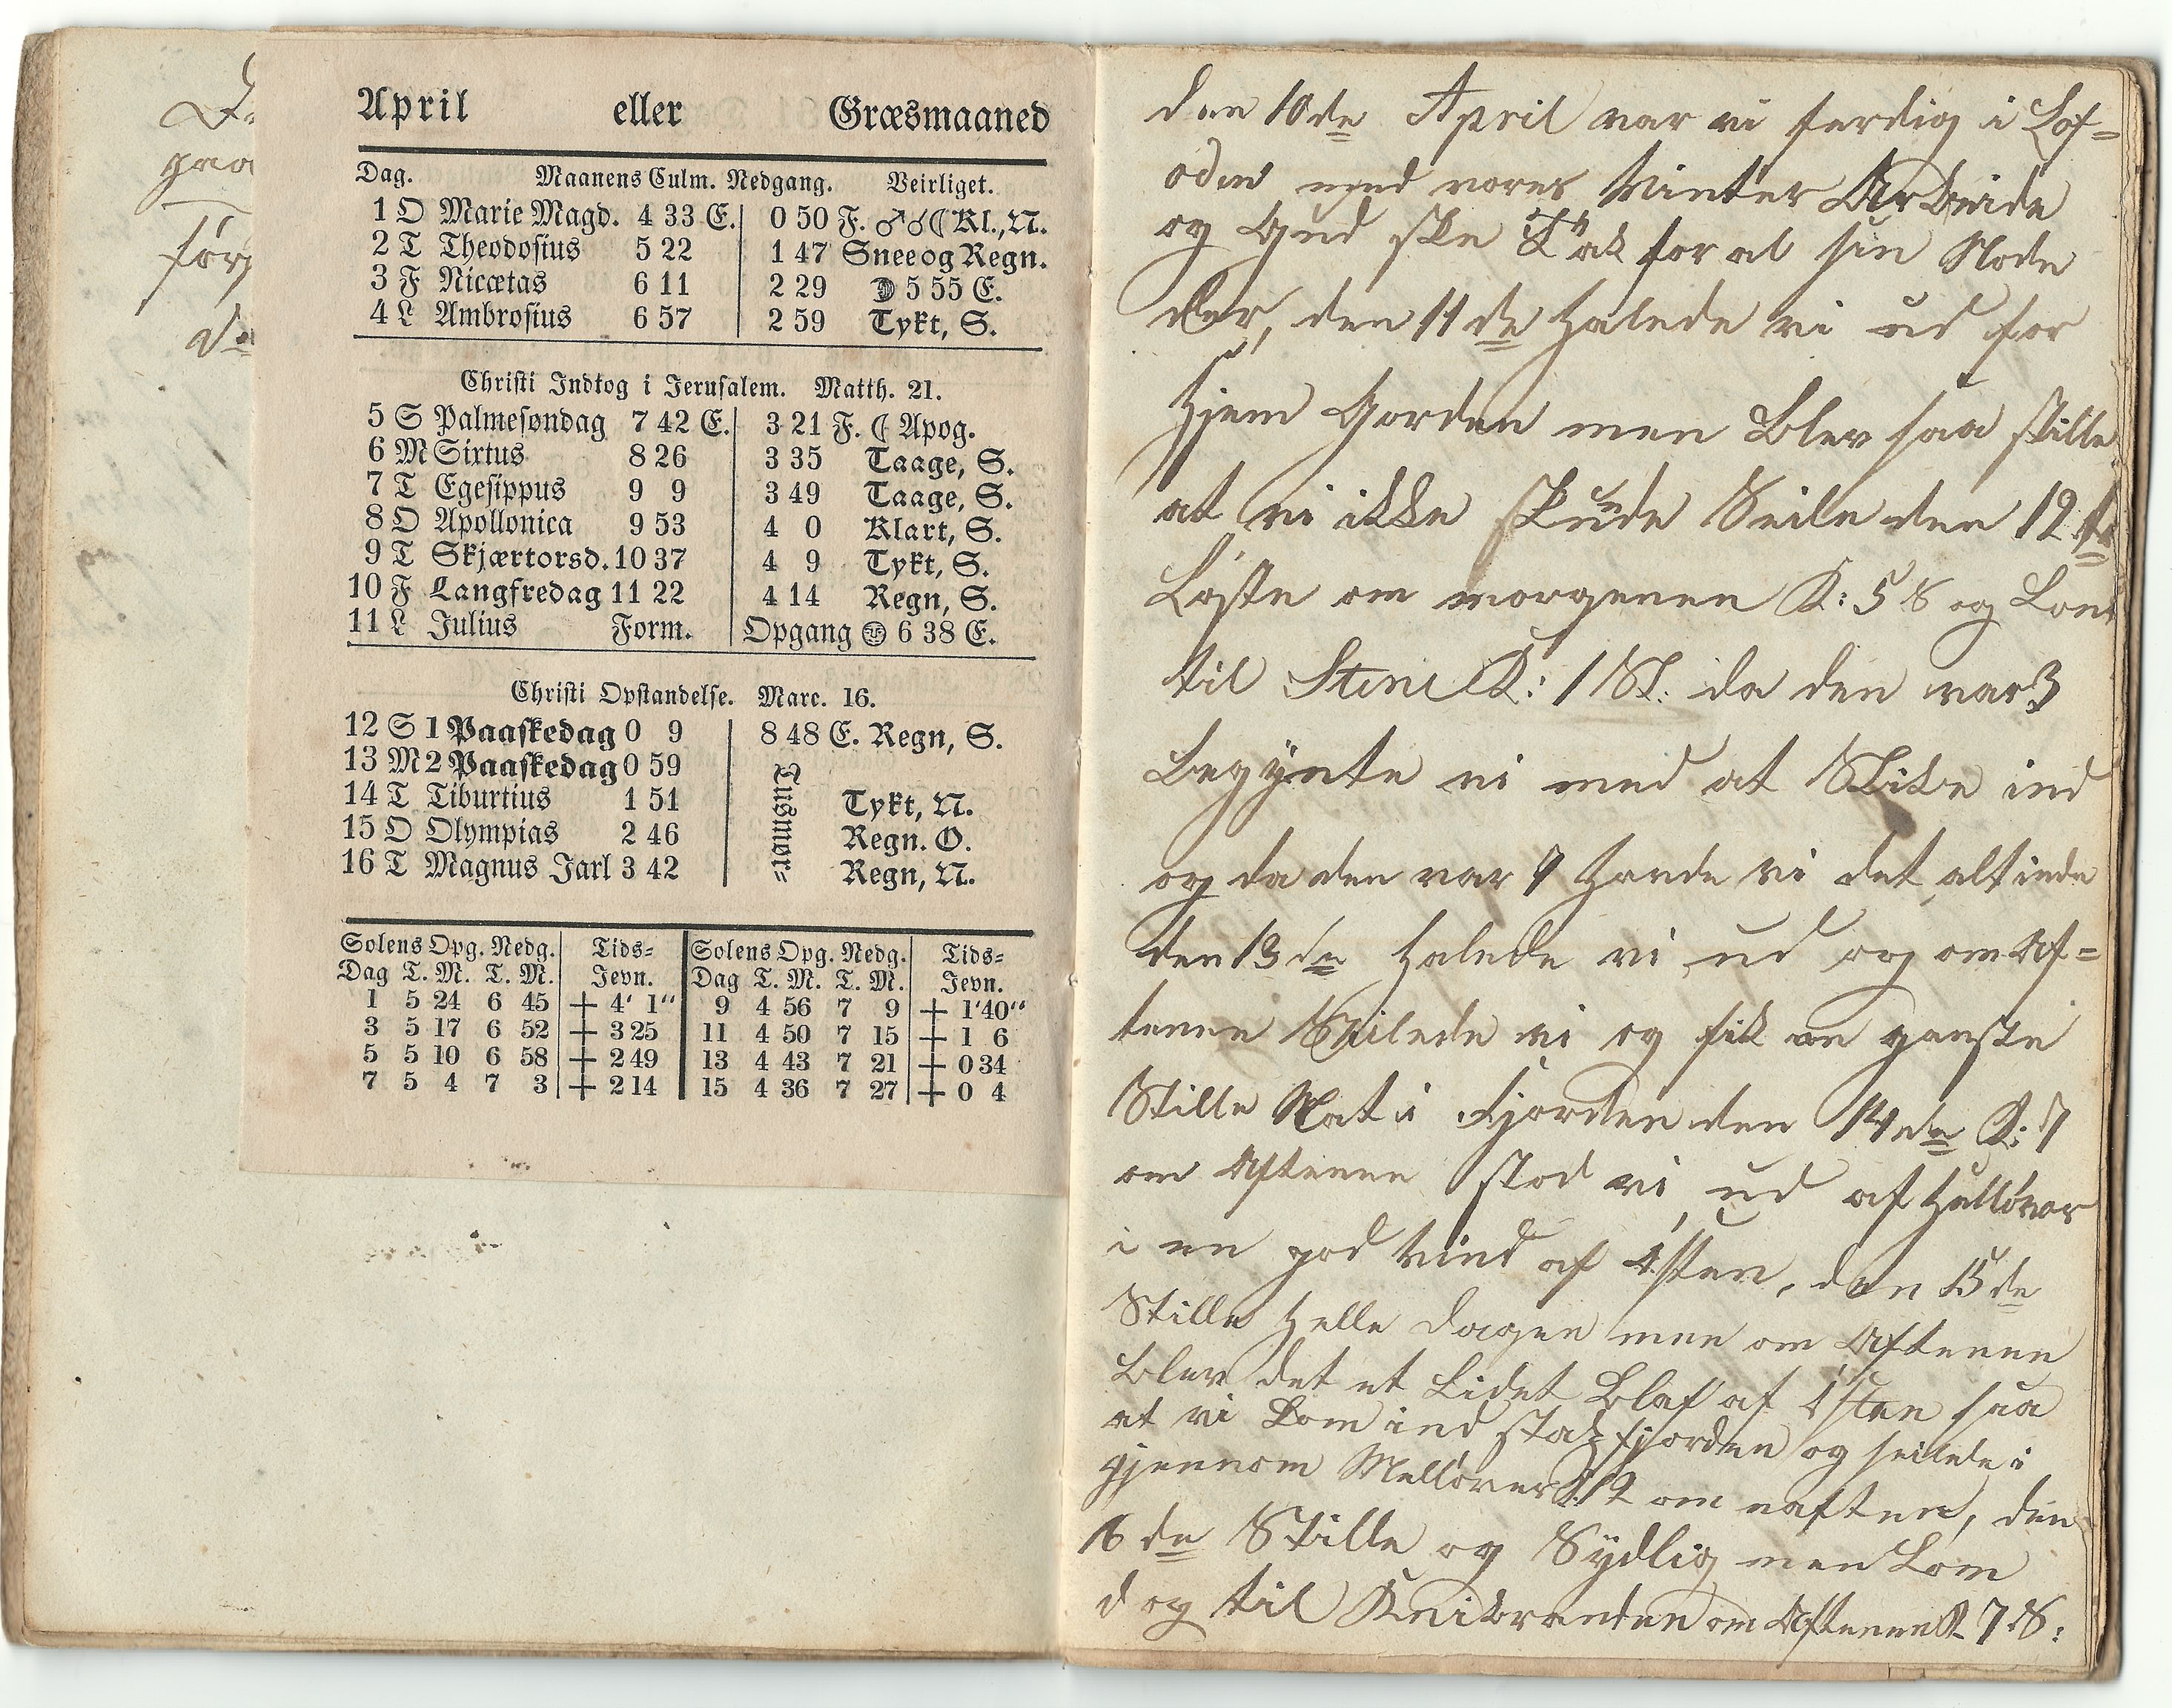 April eller Græsmaaned
Dag. Maanens Culm. Nedgang. Veirliget.
1 O Marie Magd. 4 33 E. 0 50 F. ♂☌☾ Kl., N.
2 T Theodosius 5 22 1 47 Snee og Regn.
3 F Nicætas 6 11 2 29 5 55 E.
4 L Ambrosius 6 57 2 59 Tykt, S.
Christi Indtog i Jerusalem. Matth. 21.
5 S Palmesøndag 7 42 E. 3 21 F. ☾ Apog.
6 M Sixtus 8 26 3 35 Taage, S.
7 T Egesippus 9 9 3 49 Taage, S.
8 O Apollonica 9 53 4 0 Klart, S.
9 T Skjærtorsd. 10 37 4 9 Tykt, S.
10 F Langfredag 11 22 4 14 Regn, S.
11 L Julius Form. Opgang 6 38 E.
Christi Opstandelse. Marc. 16.
12 S 1 Paaskedag 0 9 8 48 E. Regn, S.
13 M 2 Paaskedag 0 59
14 T Tiburtius 1 51 Tykt, N.
15 O Olympias 2 46 Regn. O.
16 T Magnus Jarl 3 42 Regn, N.
Lusmør=
Solens Opg. Nedg. Tids= Solens Opg. Nedg. Tids=
Dag T. M. T. M. Jevn. Dag T. M. T. M. Jevn.
1 5 24 6 45 + 4' 1" 9 4 56 7 9 + 1'40"
3 5 17 6 52 + 3 25 11 4 50 7 15 + 1 6
5 5 10 6 58 + 2 49 13 4 43 7 21 + 0 34
7 5 4 7 3 + 2 14 15 4 36 7 27 + 0 4
den 10de April var vi ferdig i Lof=
oden med vores Vinter Arbeide
og Gud ske Tak for al sin Node
der, den 11de halede vi ud for
Hjem Gorden men Blev saa stille
at vi ikke kunde Seile den 12te
Løste om morgenen K: 5 S og kom
til Stene K: 1 Sl. da den var 3
Begynte vi med at Stike ind
og da den var 9 havde vi det alt inde
den 13de halede vi ud og om Af=
tenen Seilede vi og fik en ganske
Stille Nat i Fjorden den 14de K: 7
om Aftenen stod vi ud af
i en god vind af østen, den 15de
Stille helle Dagen men om Aftenen
Blev det et Lidet Blaf af østen saa
at vi kom ind fjorden og seilede i
gjennom K: 12 om naften, den
16de Stille og Sydlig men kom
dog til om Aftenen K 7 S: